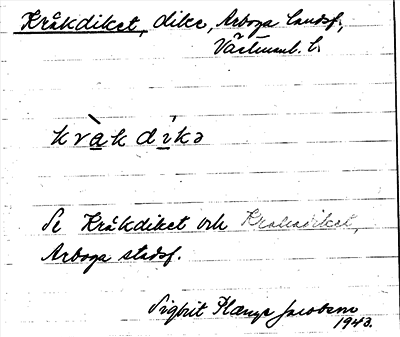 Kråkdiket, dike, Arboga landsf.,
Västmanl. l.
kràkdíkə
Se Kråkdiket och
Arboga stadsf.
Sigbrit Plænge Jacobson
1943.